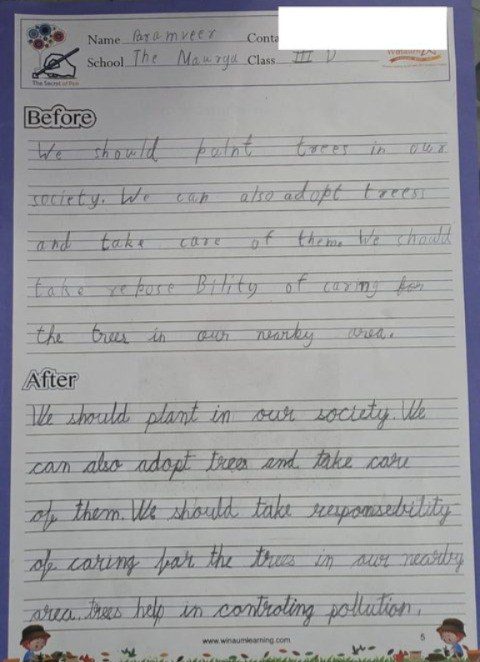 Name Paramveer Conta
School The Mawrya Class III D
The Secret of Pen
Before
We should palnt trees in our
society. We can also adopt trees
and take care of them. We should
take repose Bility of caring for
the trees in our nearby area.
After
We should plant in our society. We
can also adopt trees and take care
of them. We should take responsebility
of caring for the trees in our nearby
area. trees help in controting pollution.
www.winaumlearning.com 5